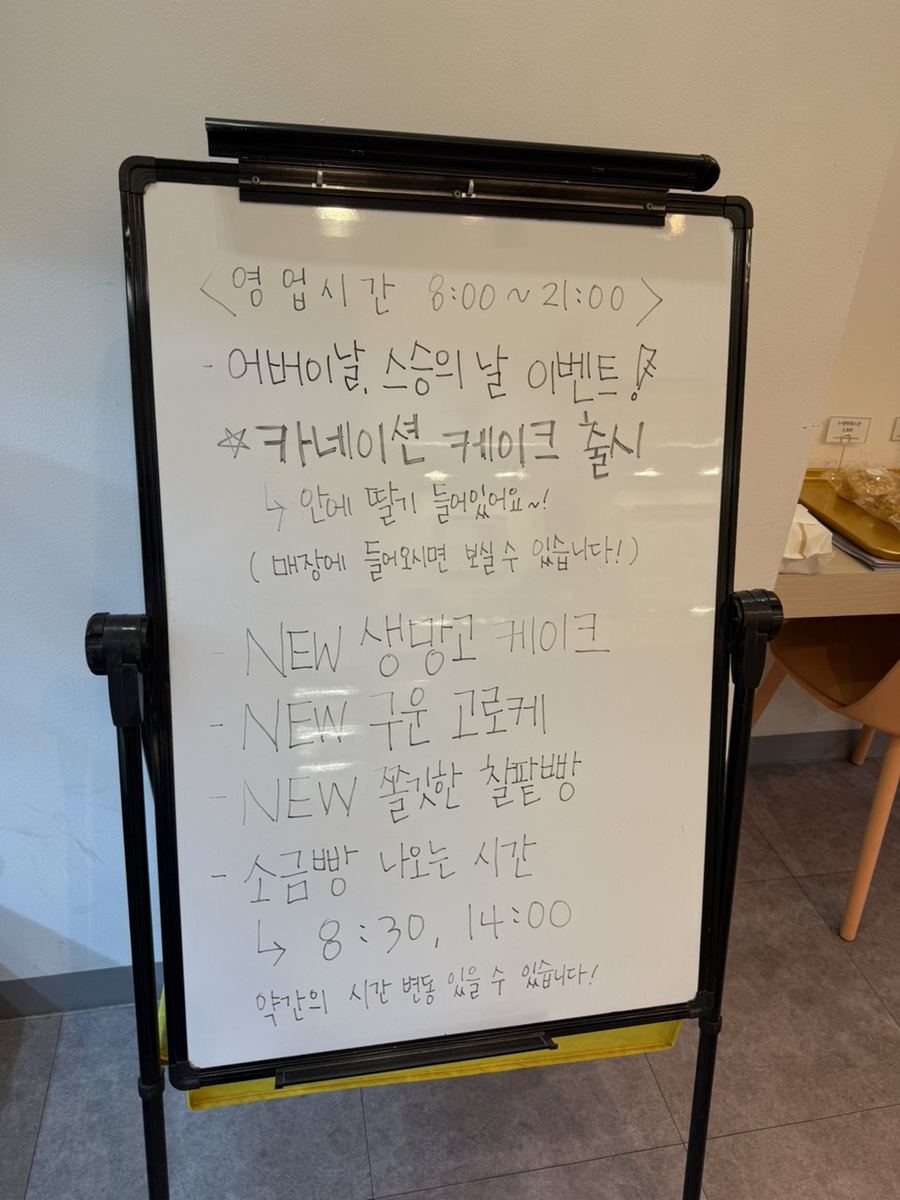 <영업시간 8:00~21:00>
- 어버이날, 스승의 날 이벤트!
☆카네이션 케이크 출시
↳ 안에 딸기 들어있어요~!
( 매장에 들어오시면 보실 수 있습니다! )
- NEW 생망고 케이크
- NEW 구운 고로케
- NEW 쫄깃한 찰팥빵
- 소금빵 나오는 시간
↳ 8:30, 14:00
약간의 시간 변동 있을 수 있습니다!